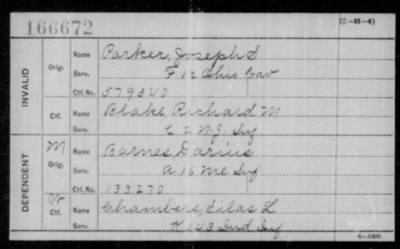 166672
(C-H-4)
INVALID
Orig.
Name Parker, Joseph S
Serv. F 12 Ohio Cav
Ctf. No. 579340
Ctf.
Name Blake, Richard M
Serv. C 2 N.J. Inf
DEPENDENT
M
Orig.
Name Barnes, Darius
Serv. A 16 Me Inf
Ctf. No. 133270
Ctf.
Name Chambers, Silas L
Serv. K 143 Ind Inf